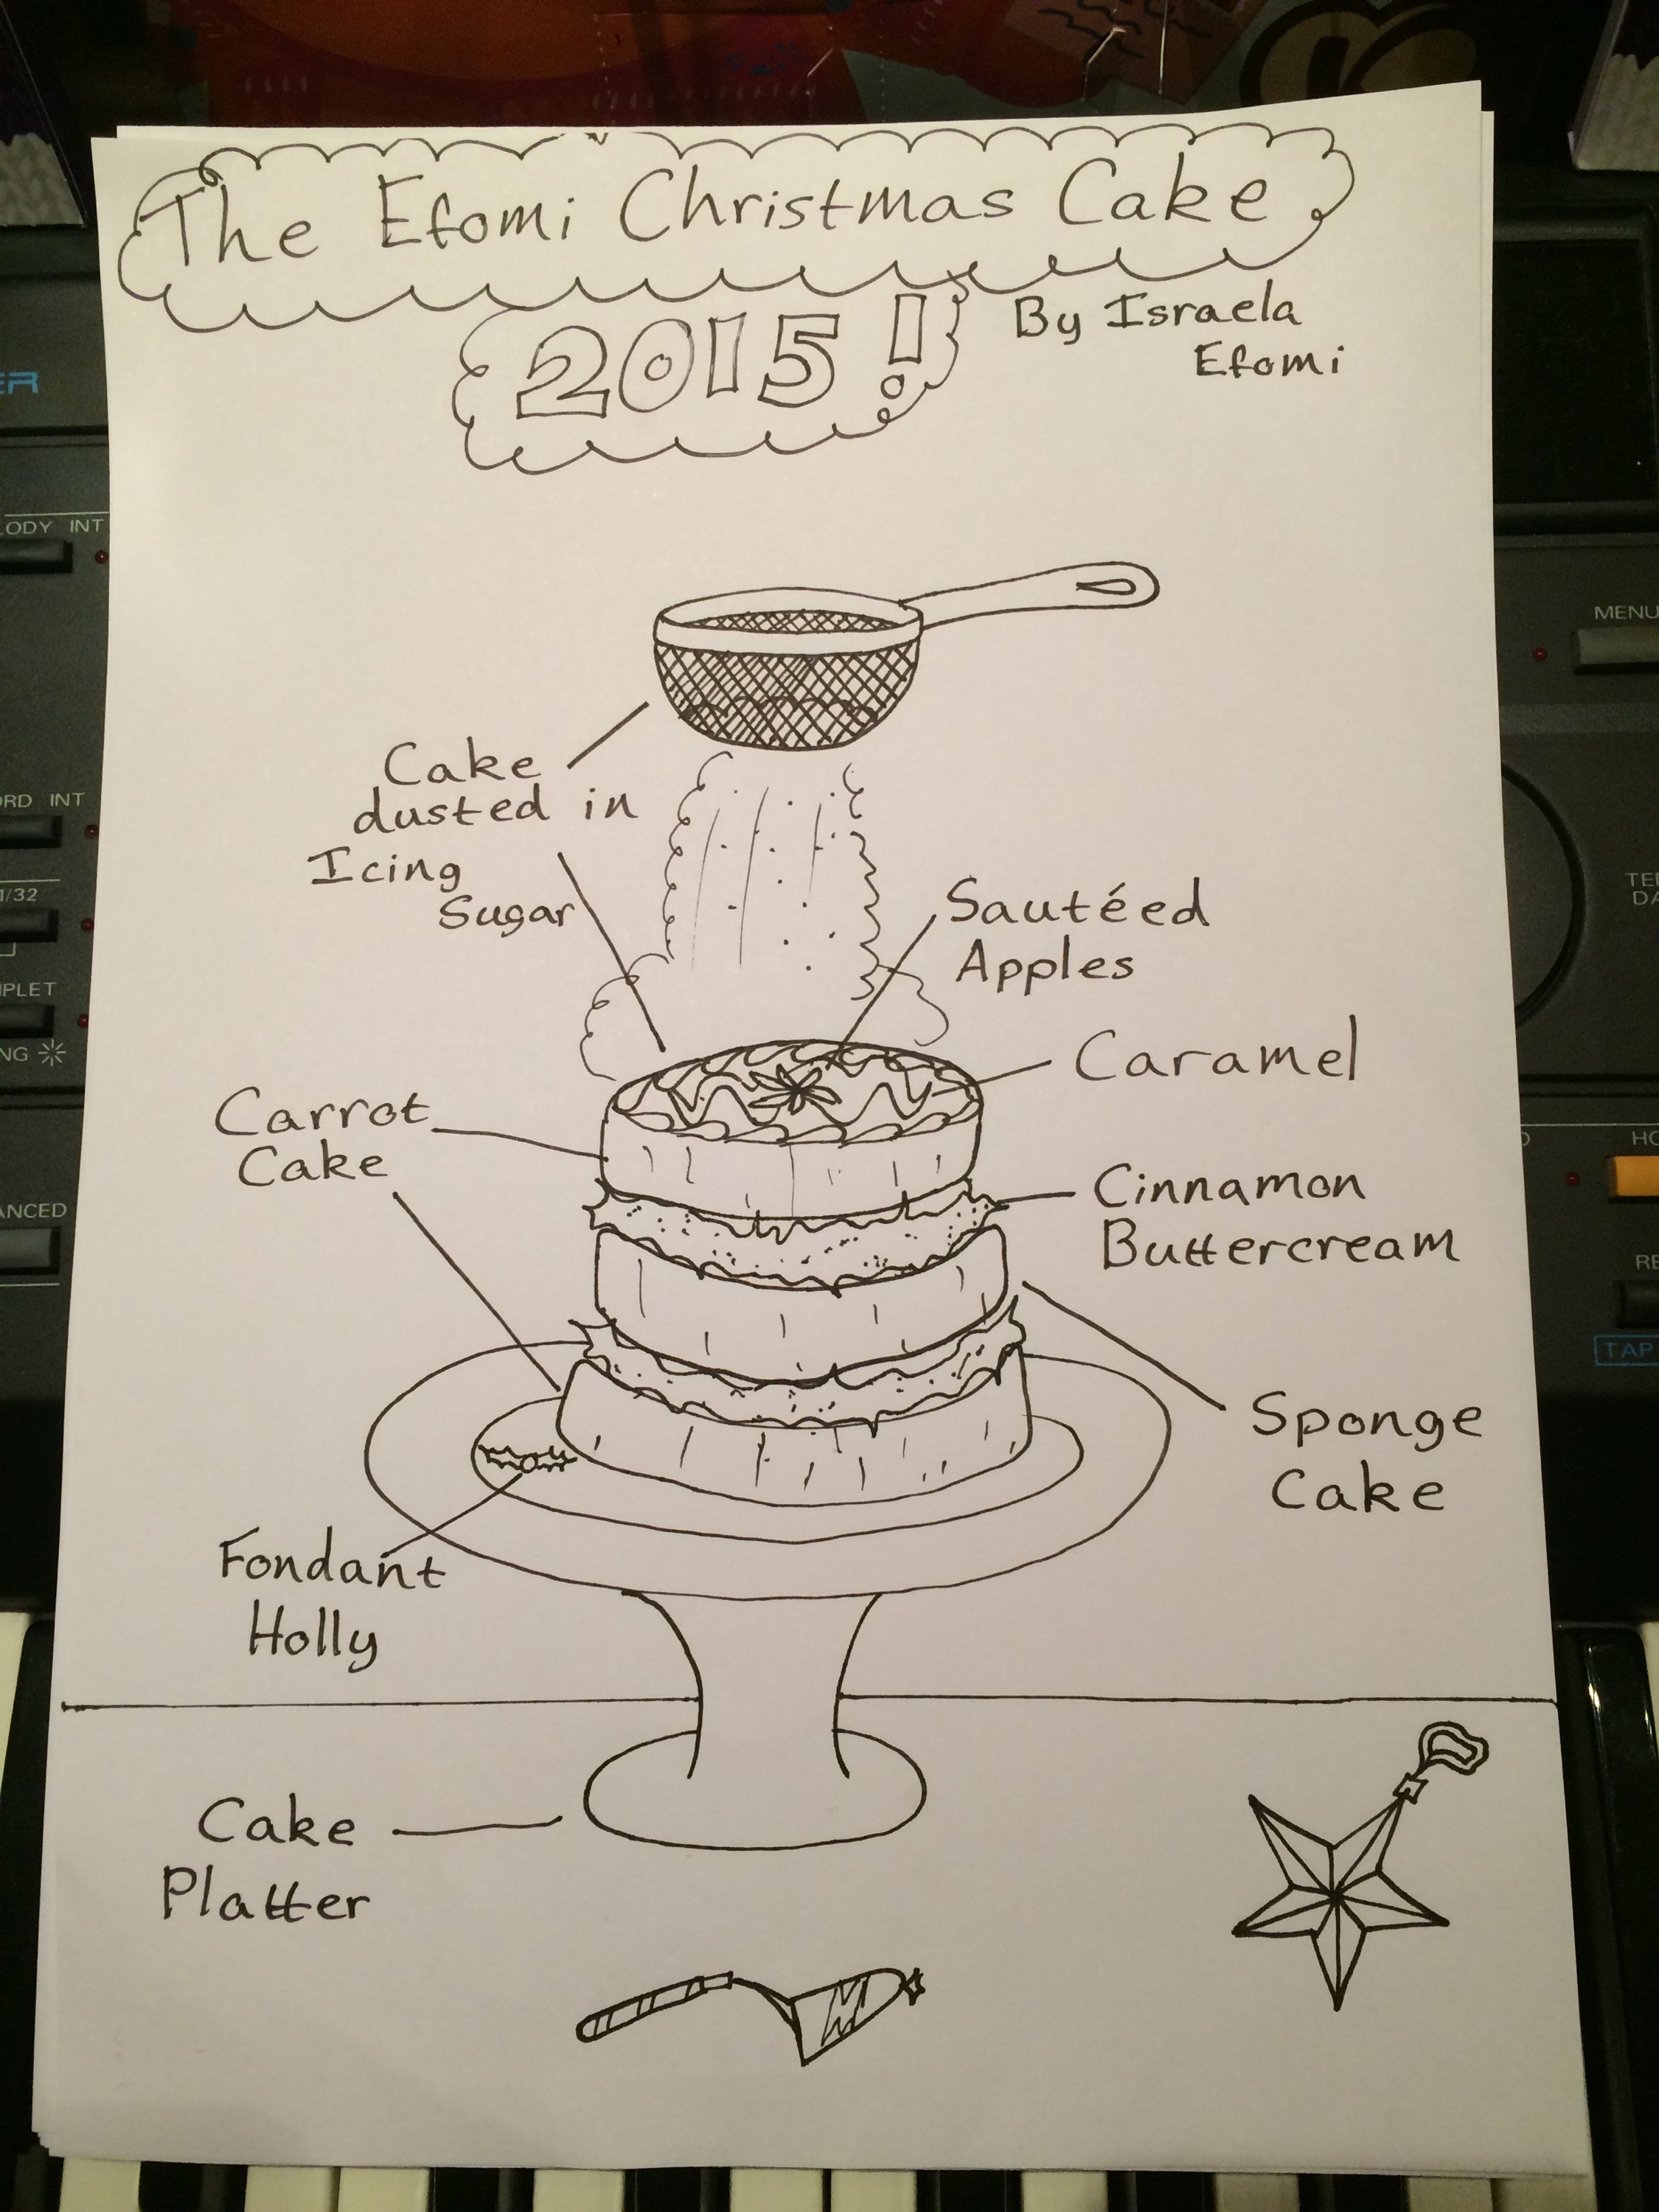 The Efomi Christmas Cake
2015!
By Israela
Efomi
Cake
dusted in
Icing
Sugar
Sautéed
Apples
Caramel
Carrot
Cake
Cinnamon
Buttercream
Sponge
Cake
Fondant
Holly
Cake
Platter
ER
LODY INT
ORD INT
1/32
IPLET
NG
ANCED
MENU
TE
DA
HO
RE
TAP